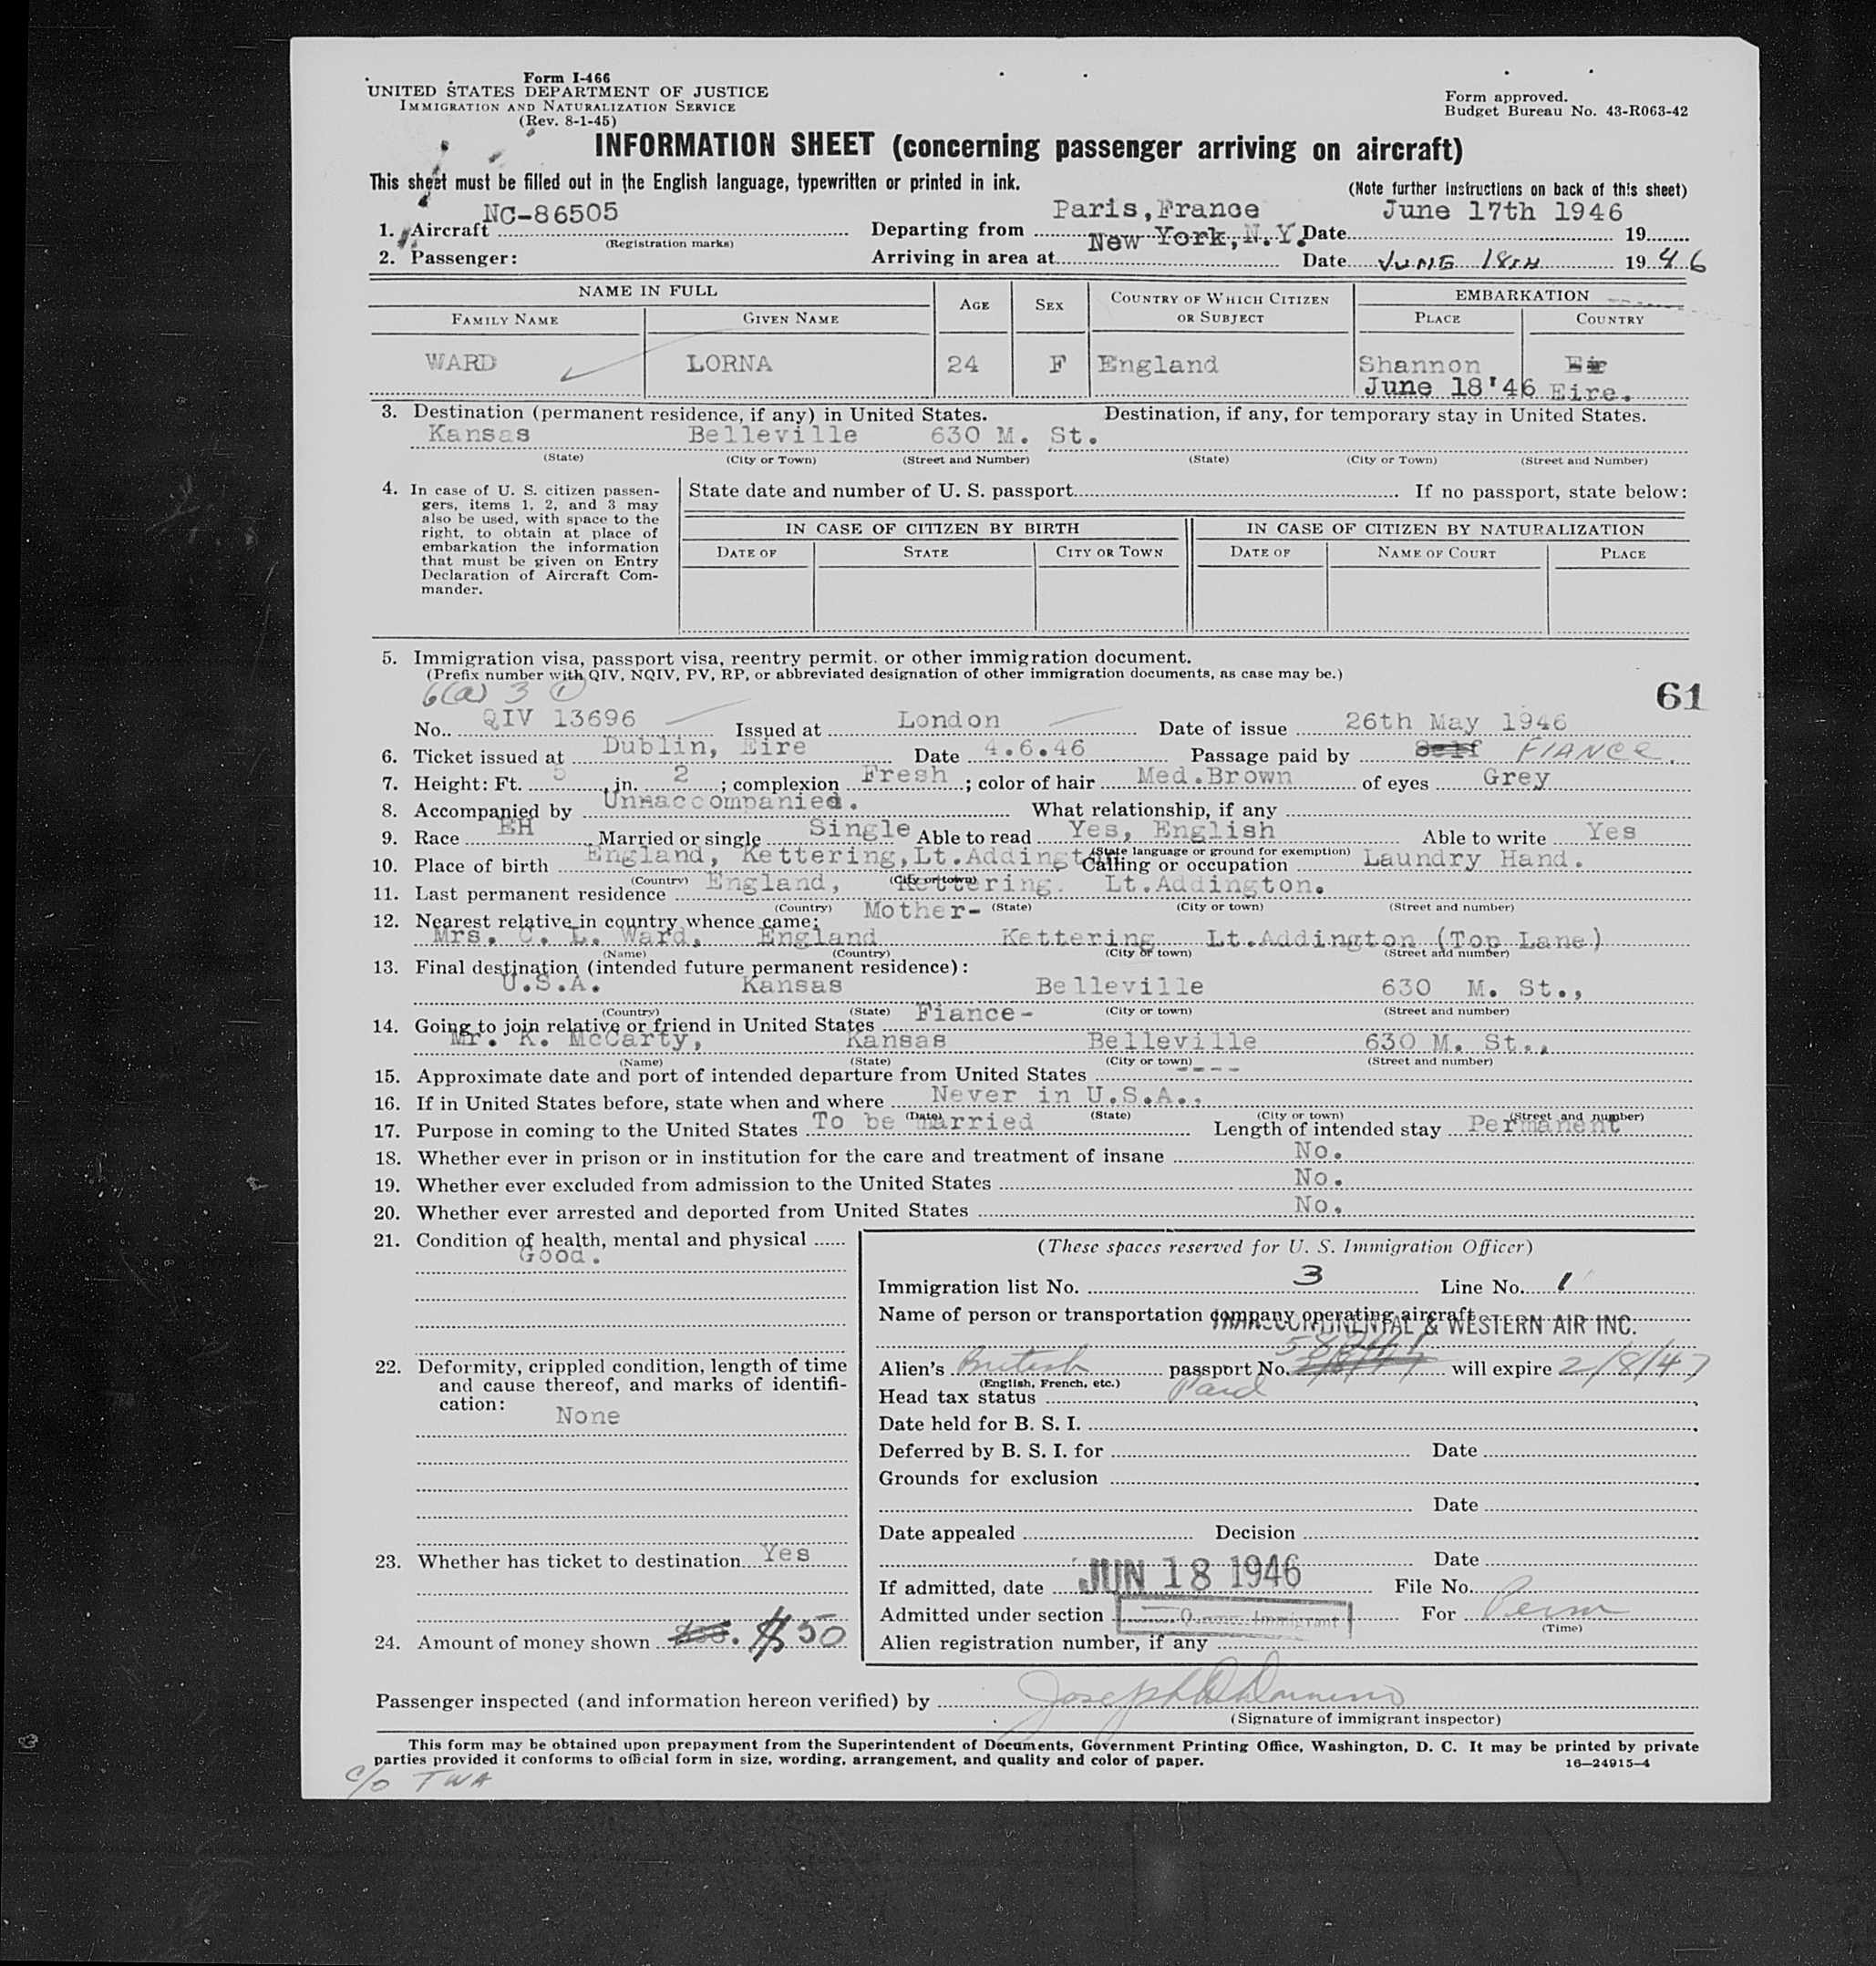 Form I-466
UNITED STATES DEPARTMENT OF JUSTICE
IMMIGRATION AND NATURALIZATION SERVICE
(Rev. 8-1-45)
Form approved.
Budget Bureau No. 43-R063-42
INFORMATION SHEET (concerning passenger arriving on aircraft)
This sheet must be filled out in the English language, typewritten or printed in ink.
(Note further instructions on back of this sheet)
1. Aircraft NC-86505 Departing from Paris, France Date June 17th 1946 19
(Registration marks)
2. Passenger: Arriving in area at New York, N.Y. Date JUNE 18TH 1946
NAME IN FULL AGE SEX COUNTRY OF WHICH CITIZEN OR SUBJECT EMBARKATION
FAMILY NAME GIVEN NAME PLACE COUNTRY
WARD LORNA 24 F England Shannon Eir
June 18'46 Eire.
3. Destination (permanent residence, if any) in United States. Destination, if any, for temporary stay in United States.
Kansas Belleville 630 M. St.
(State) (City or Town) (Street and Number) (State) (City or Town) (Street and Number)
4. In case of U. S. citizen passengers, items 1, 2, and 3 may also be used, with space to the right, to obtain at place of embarkation the information that must be given on Entry Declaration of Aircraft Commander.
State date and number of U. S. passport If no passport, state below:
IN CASE OF CITIZEN BY BIRTH IN CASE OF CITIZEN BY NATURALIZATION
DATE OF STATE CITY OR TOWN DATE OF NAME OF COURT PLACE
5. Immigration visa, passport visa, reentry permit, or other immigration document.
(Prefix number with QIV, NQIV, PV, RP, or abbreviated designation of other immigration documents, as case may be.)
6(a) 3 1
61
No. QIV 13696 Issued at London Date of issue 26th May 1946
6. Ticket issued at Dublin, Eire Date 4.6.46 Passage paid by Self FIANCE.
7. Height: Ft. 5 in. 2 ; complexion Fresh ; color of hair Med.Brown of eyes Grey
8. Accompanied by Unnaccompanied. What relationship, if any
9. Race EH Married or single Single Able to read Yes, English Able to write Yes
(State language or ground for exemption)
10. Place of birth England, Kettering, Lt.Addington Calling or occupation Laundry Hand.
(Country) (City or town)
11. Last permanent residence England, Kettering. Lt.Addington.
(Country) (State) (City or town) (Street and number)
12. Nearest relative in country whence came: Mother-
Mrs. C. L. Ward, England Kettering Lt.Addington (Top Lane)
(Name) (Country) (City or town) (Street and number)
13. Final destination (intended future permanent residence):
U.S.A. Kansas Belleville 630 M. St.,
(Country) (State) (City or town) (Street and number)
14. Going to join relative or friend in United States Fiance-
Mr. K. McCarty, Kansas Belleville 630 M. St.,
(Name) (State) (City or town) (Street and number)
15. Approximate date and port of intended departure from United States ----
16. If in United States before, state when and where Never in U.S.A..
(Date) (State) (City or town) (Street and number)
17. Purpose in coming to the United States To be married Length of intended stay Permanent
18. Whether ever in prison or in institution for the care and treatment of insane No.
19. Whether ever excluded from admission to the United States No.
20. Whether ever arrested and deported from United States No.
21. Condition of health, mental and physical
Good.
22. Deformity, crippled condition, length of time and cause thereof, and marks of identification:
None
23. Whether has ticket to destination Yes
24. Amount of money shown $50
(These spaces reserved for U. S. Immigration Officer)
Immigration list No. 3 Line No. 1
Name of person or transportation company operating aircraft
TRANSCONTINENTAL & WESTERN AIR INC.
Alien's British passport No. will expire 2/8/47
(English, French, etc.)
Head tax status Paid
Date held for B. S. I.
Deferred by B. S. I. for Date
Grounds for exclusion
Date
Date appealed Decision
Date
If admitted, date JUN 18 1946 File No.
Admitted under section Quota Immigrant For Perm
(Time)
Alien registration number, if any
Passenger inspected (and information hereon verified) by
(Signature of immigrant inspector)
This form may be obtained upon prepayment from the Superintendent of Documents, Government Printing Office, Washington, D. C. It may be printed by private
parties provided it conforms to official form in size, wording, arrangement, and quality and color of paper. 16—24915-4
c/o TWA